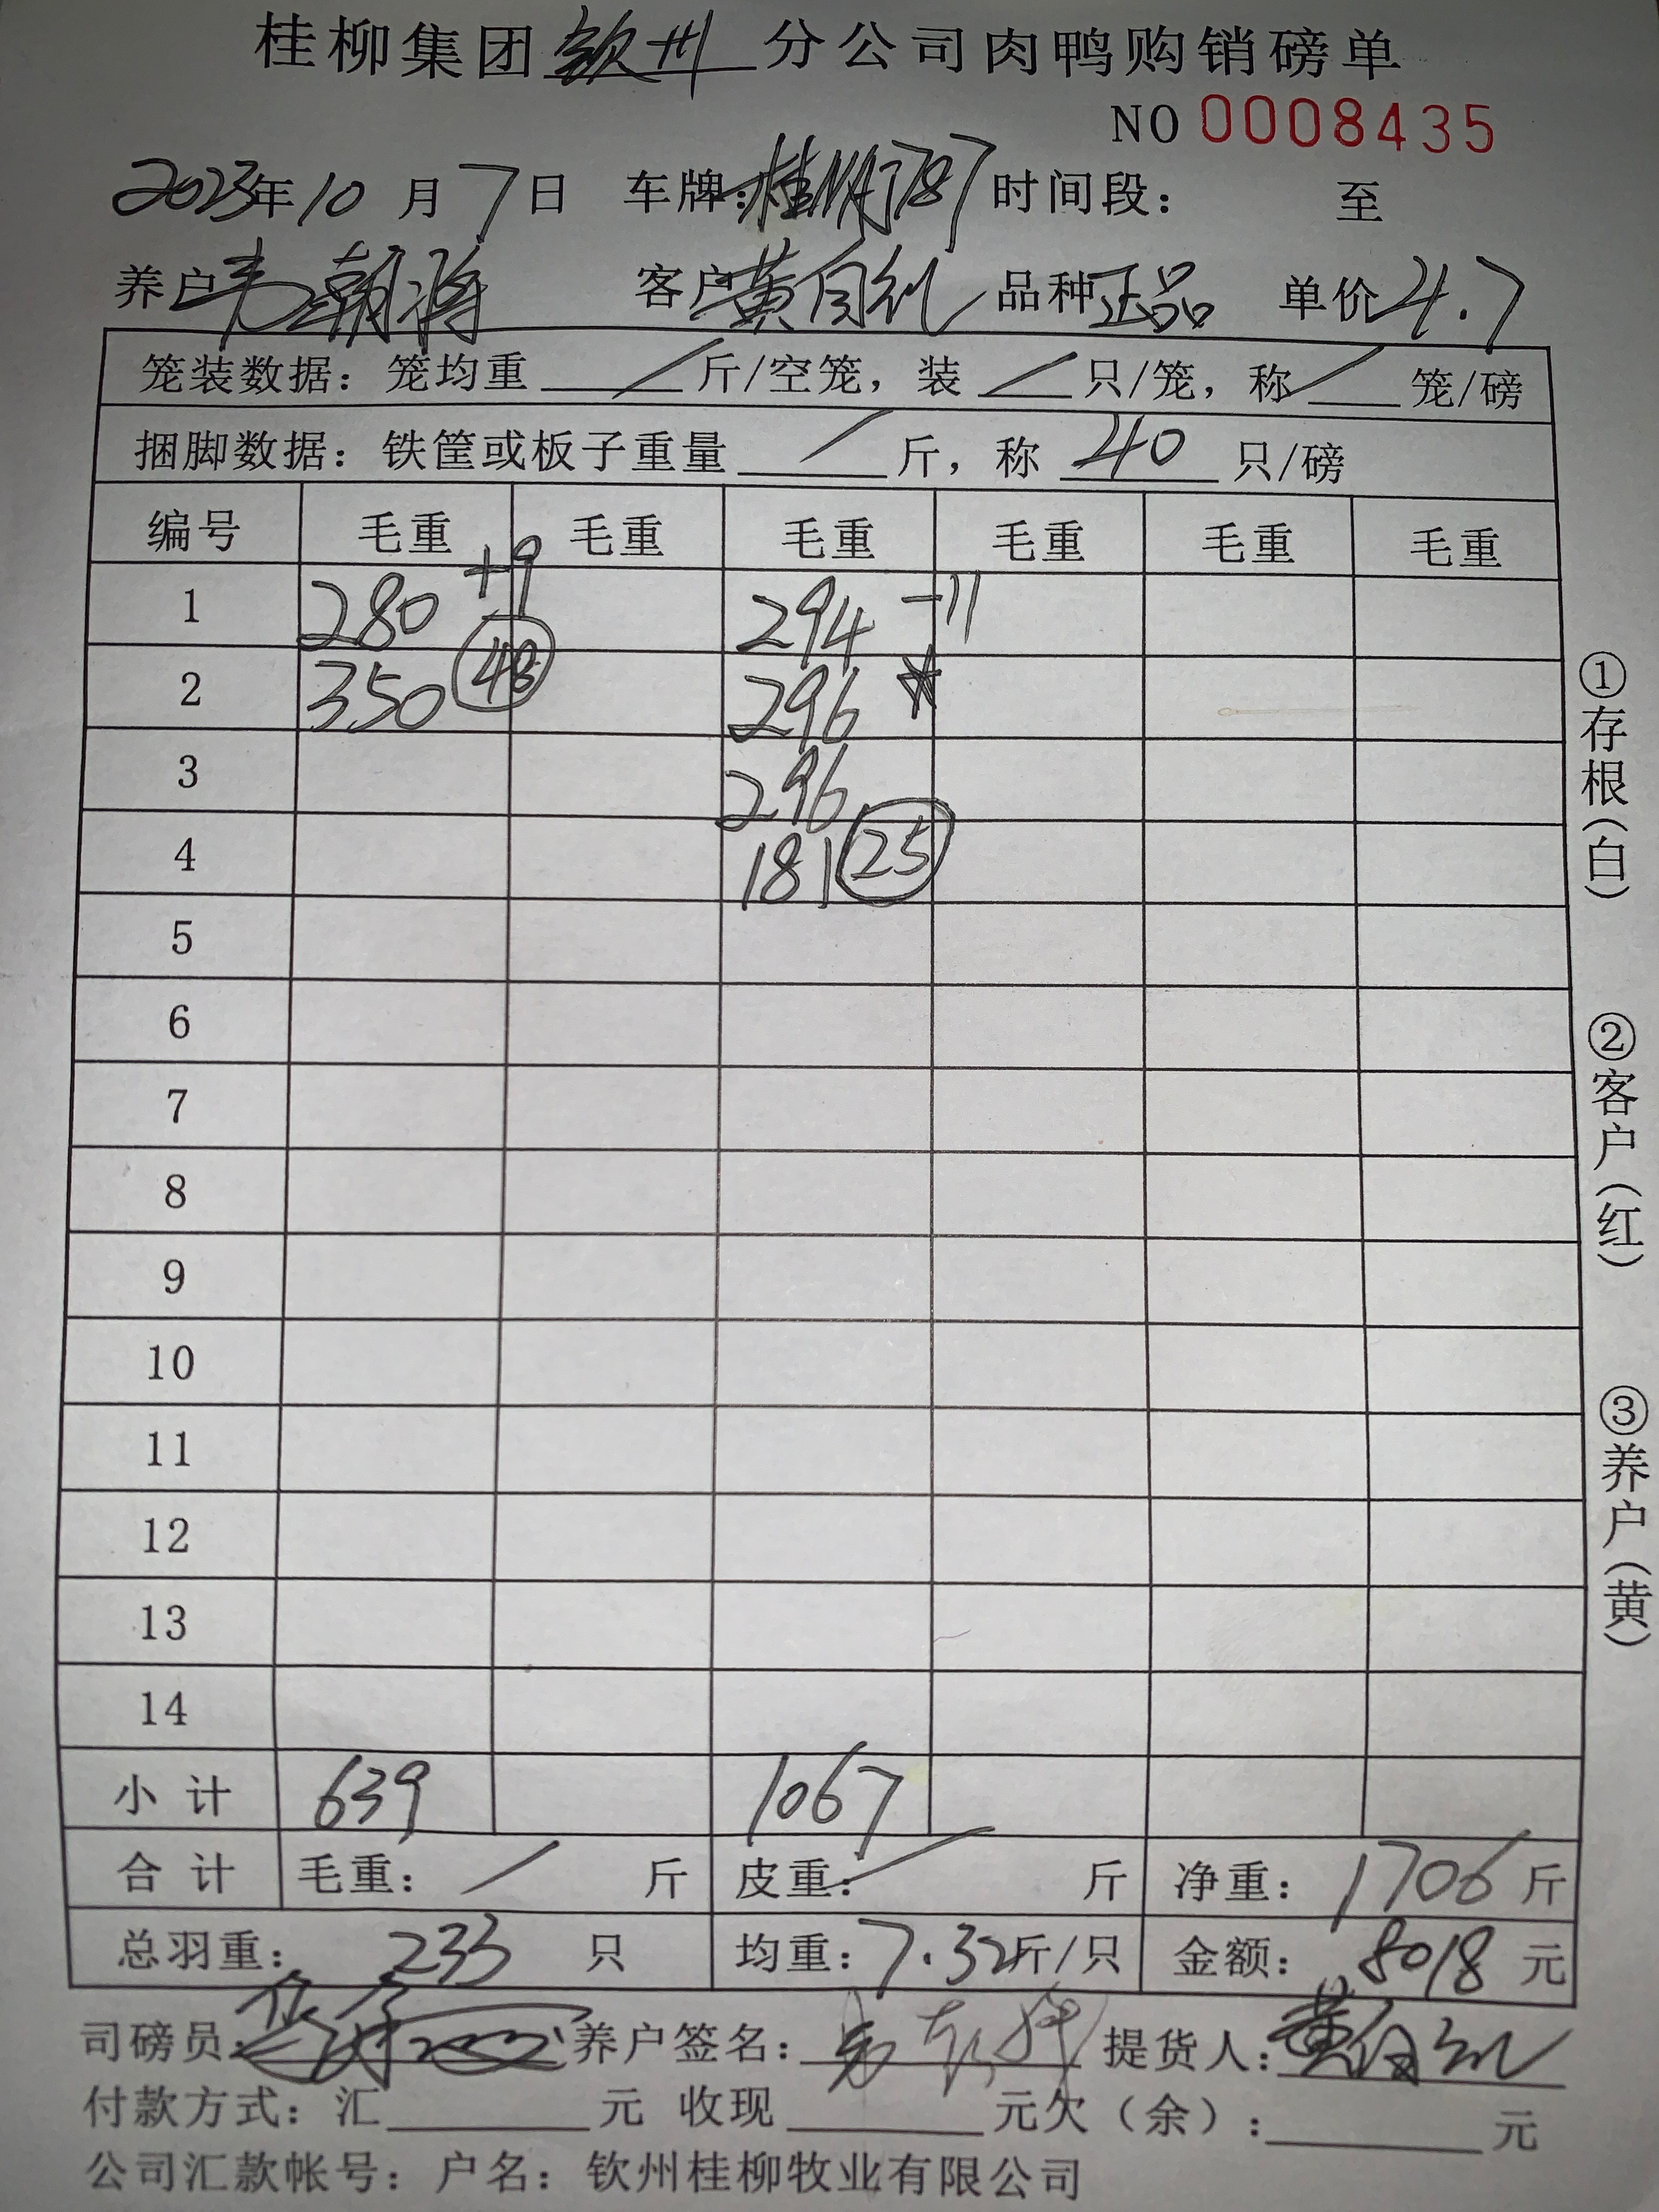 桂柳集团钦州分公司肉鸭购销磅单
NO 0008435
2023年10月7日 车牌: 时间段: 至
养户韦朝将 客户黄自红 品种正品 单价4.7
笼装数据: 笼均重 / 斤/空笼, 装 / 只/笼, 称 / 笼/磅
捆脚数据: 铁筐或板子重量 / 斤, 称 40 只/磅
编号 毛重 毛重 毛重 毛重 毛重 毛重
1 280 +9 294 -11
2 350 48 296
3 296
4 181 25
5
6
7
8
9
10
11
12
13
14
小计 639 1067
合计 毛重: / 斤 皮重: / 斤 净重: 1706 斤
总羽重: 233 只 均重: 7.32斤/只 金额: 8018 元
司磅员: 养户签名: 提货人: 黄自红
付款方式: 汇 元 收现 元欠(余): 元
公司汇款帐号: 户名: 钦州桂柳牧业有限公司
①存根(白)
②客户(红)
③养户(黄)